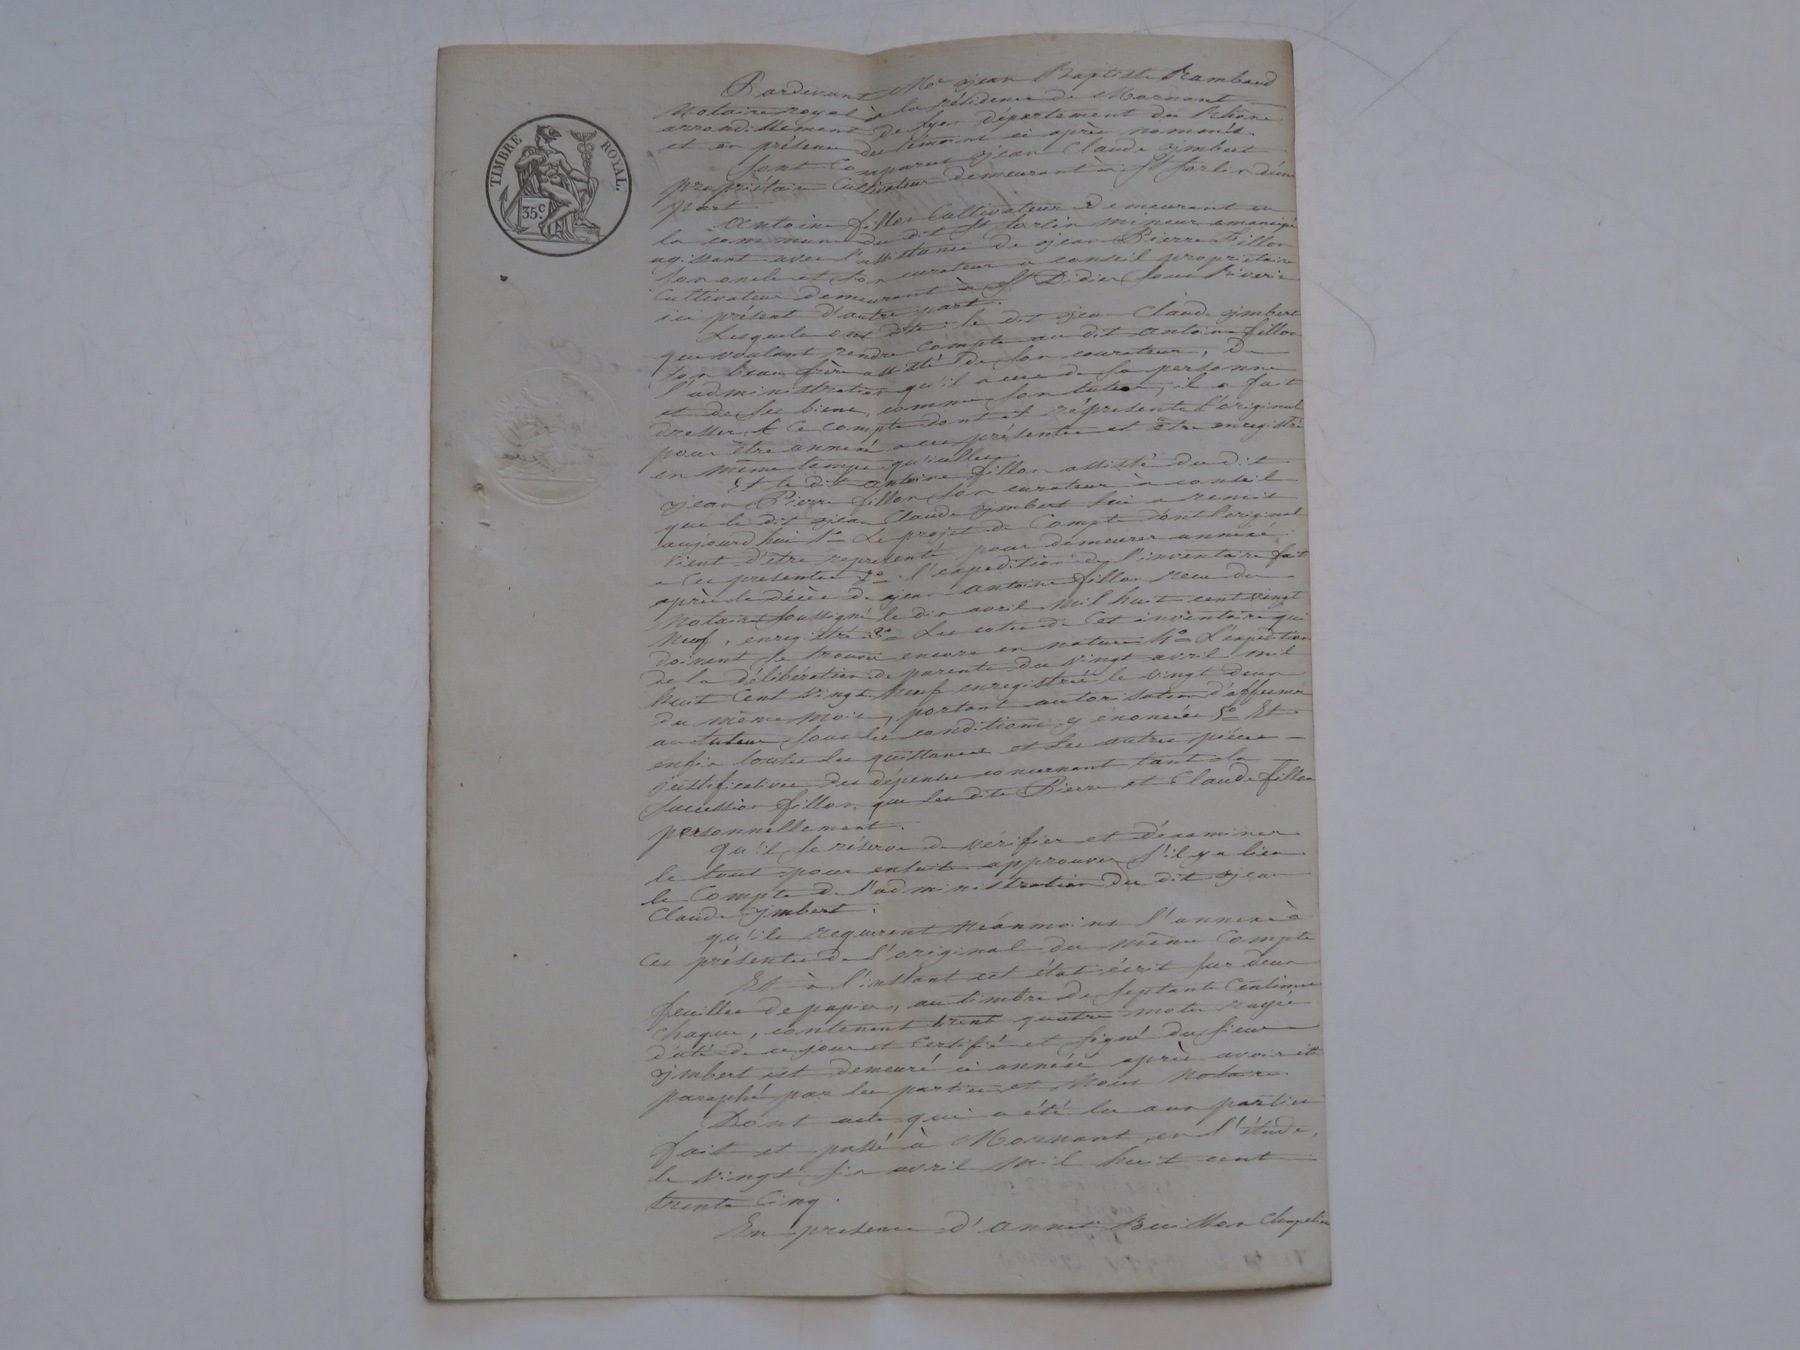 TIMBRE ROYAL.
35c.
Pardevant Me Jean Baptiste Rambaud
Notaire royal à la résidence de Mornant
arrondissement de Lyon département du Rhône
et en présence des témoins ci après nommés.
Sont Comparus Jean Claude Imbert
propriétaire Cultivateur demeurant à St Sorlin d'une
part.
Antoine fillon Cultivateur demeurant en
la commune du dit St Sorlin mineur emancipé
agissant avec l'assistance de Jean Pierre Fillon
son oncle et son curateur a conseil propriétaire
Cultivateur demeurant à St Didier sous Riverie
ici présent d'autre part.
Lesquels ont dits : le dit Jean Claude Imbert
que voulant rendre Compte au dit Antoine fillon
son beau frère assisté de son curateur, de
l'administration qu'il a eue de sa personne
et de ses biens, comme son tuteur, il a fait
dresser le Compte dont il répresente l'original
pour être annexé a ces présentes et être enregistré
en même temps qu'icelles.
Et le dit Antoine fillon assisté du dit
Jean Pierre fillon son curateur a conseil
que le dit Jean Claude Imbert lui a remis
aujourd'hui 1o Le projet de Compte dont l'original
vient d'être représenté pour demeurer annexé
a ces presentes 2o l'expedition de l'inventaire fait
après le décès de Jean Antoine fillon recu du
Notaire soussigné le dix avril mil huit cent vingt
neuf, enregistré 3o Les cotes de Cet inventaire qui
doivent se trouver encore en nature 4o L'expedition
de la délibération de parents du vingt avril mil
huit Cent vingt neuf enregistrée le vingt deux
du même mois, portant autorisation d'affermer
au tuteur sous les conditions y énoncées 5o Et
enfin toutes les quittances et les autres pièces
justificatives des dépenses concernant tant la
succession fillon, que les dits Pierre et Claude fillon
personnellement.
qu'il se réserve de vérifier et d'examiner
le tout pour ensuite approuver s'il y a lieu
le Compte de l'administration du dit Jean
Claude Imbert.
qu'ils requirent néanmoins l'annexe à
Ces présentes de l'original du même Compte
Et à l'instant cet état écrit sur deux
feuilles de papier, au timbre de septante Centimes
chaque, contenant trent quatre mots rayés
daté de ce jour et Certifié et signé du sieur
Imbert est demeuré ci annéxé après avoir été
paraphé par les parties et Nous Notaire.
Dont acte qui a été lu aux parties
fait et passé à Mornant en l'étude,
le vingt six avril mil huit cent
trente Cinq.
En presence d' Chapelier